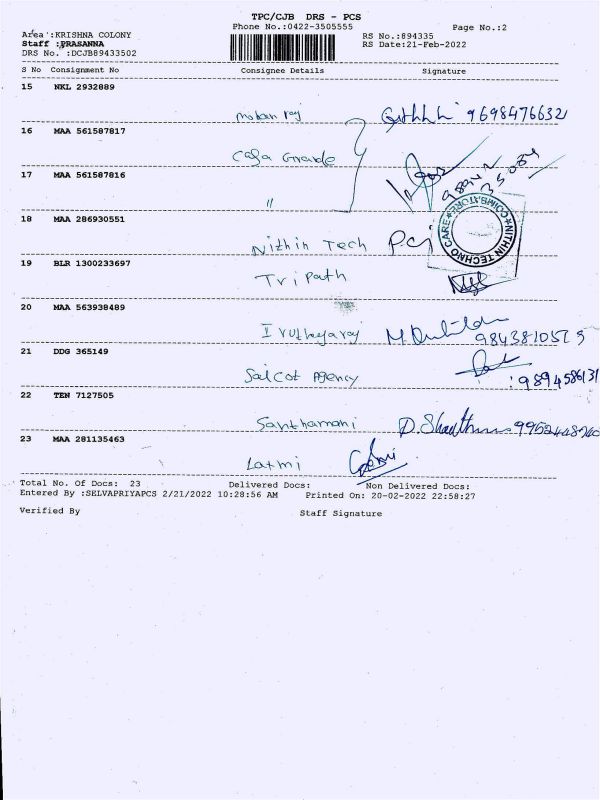 TPC/CJB DRS - PCS
Phone No.:0422-3505555 Page No.:2
Area :KRISHNA COLONY RS No.:894335
Staff :PRASANNA RS Date:21-Feb-2022
DRS No. :DCJB89433502
S No Consignment No Consignee Details Signature
15 NKL 2932889
Mohan raj 9698476632
16 MAA 561587817
Casa Grande
17 MAA 561587816
"
18 MAA 286930551
Nithin Tech
NITHIN TECHNO CARE COIMBATORE
19 BLR 1300233697
Tripath
20 MAA 563938489
Iruthayaraj
21 DDG 365149
Saicot Agency 9894586131
22 TEN 7127505
Santhamani
23 MAA 281135463
Laxmi
Total No. Of Docs: 23 Delivered Docs: Non Delivered Docs:
Entered By :SELVAPRIYAPCS 2/21/2022 10:28:56 AM Printed On: 20-02-2022 22:58:27
Verified By Staff Signature